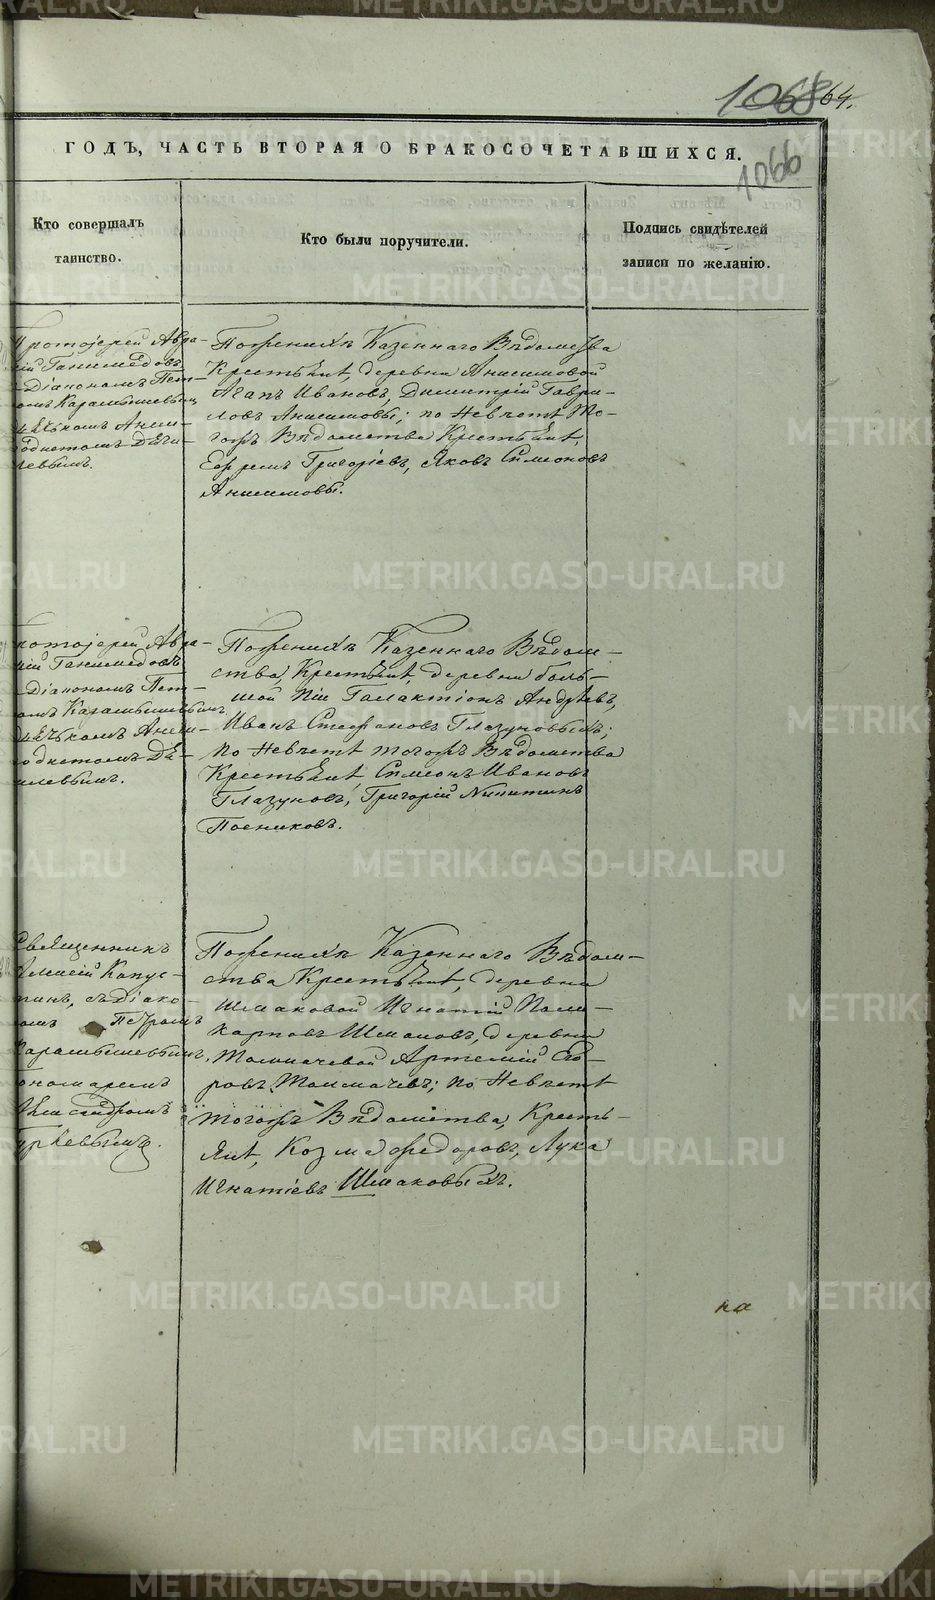 1068 64.
1066
ГОДЪ, ЧАСТЬ ВТОРАЯ О БРАКОСОЧЕТАВШИХСЯ.
Кто совершалъ
таинство.
Кто были поручители.
Подпись свидѣтелей
записи по желанію.
Протоіерей Авра-
мій Ганимедовъ
Діакономъ Пет-
ромъ Карамышевымъ
Дьячкомъ Анем-
Дѣми-
левымъ.
По женихѣ Казеннаго Вѣдомства
Крестьяне, деревни Анисимовой
Агапъ Ивановъ, Димитрій Гаври-
ловъ Анисимовы; по Невѣстѣ То-
гожъ Вѣдомства Крестьяне,
Ефремъ Григоріевъ, Яковъ Симеоновъ
Анисимовы.
Протоіерей Авра-
мій Ганимедовъ
Діакономъ Пет-
ромъ Карамышевымъ
левымъ.
По женихѣ Казеннаго Вѣдом-
ства, Крестьяне, деревни боль-
шой Галактіонъ Андреевъ,
Иванъ Стефановъ Глазуновыхъ;
по Невѣстѣ тогожъ Вѣдомства
Крестьяне, Симеонъ Ивановъ
Глазуновъ, Григорій Никитинъ
Посниковъ.
Священникъ
Алексій Капус-
тинъ, съ діако-
номъ Петромъ
Карамышевымъ,
пономаремъ
Александромъ
По женихѣ Казеннаго Вѣдом-
ства Крестьяне, деревни
Шмаковой Игнатій Поли-
карповъ Шмаковъ, деревни
Толмачевой Артемій Его-
ровъ Толмачевъ; по Невѣстѣ
тогожъ Вѣдомства, Кресть-
яне, Козма Федоровъ, Лука
Игнатіевъ Шмаковыхъ.
на
METRIKI.GASO-URAL.RU